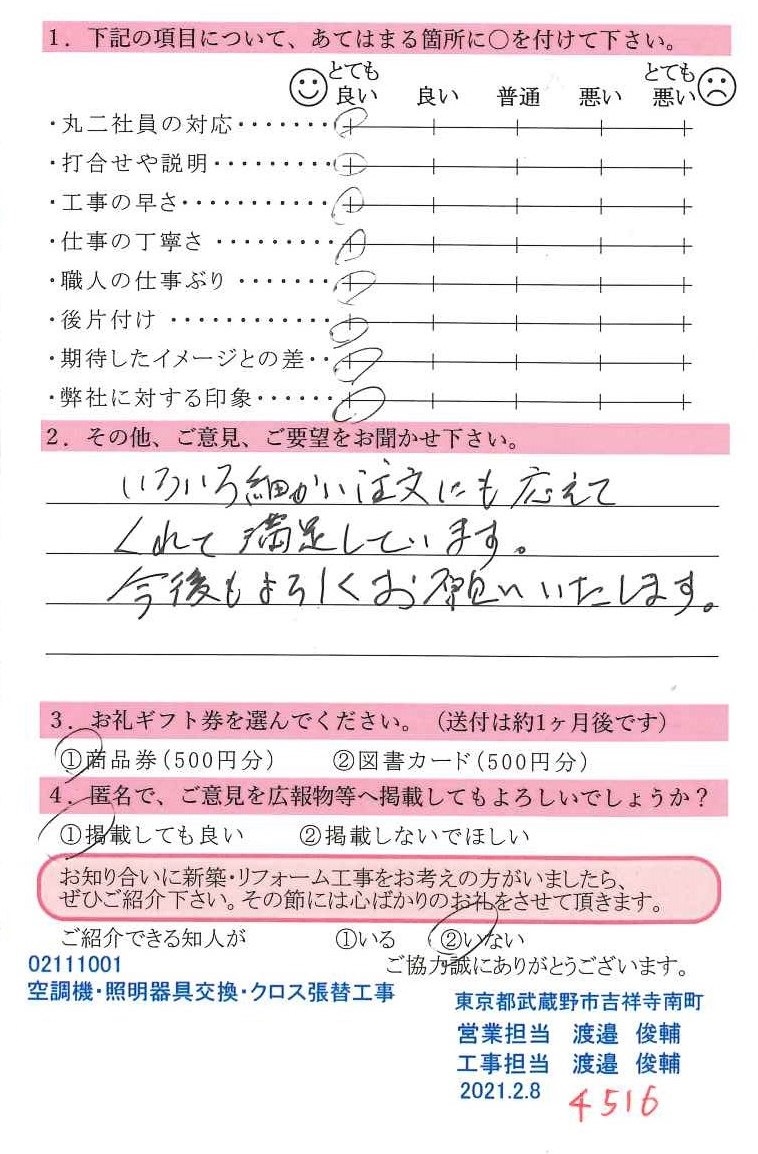 1．下記の項目について、あてはまる箇所に○を付けて下さい。
とても良い 良い 普通 悪い とても悪い
・丸二社員の対応・・・・・・・
・打合せや説明・・・・・・・・・
・工事の早さ・・・・・・・・・・・
・仕事の丁寧さ・・・・・・・・・
・職人の仕事ぶり・・・・・・・・
・後片付け・・・・・・・・・・・・
・期待したイメージとの差・・
・弊社に対する印象・・・・・・
2．その他、ご意見、ご要望をお聞かせ下さい。
いろいろ細かい注文にも応えて
くれて満足しています。
今後もよろしくお願いいたします。
3．お礼ギフト券を選んでください。（送付は約1ヶ月後です）
①商品券(500円分) ②図書カード(500円分)
4．匿名で、ご意見を広報物等へ掲載してもよろしいでしょうか？
①掲載しても良い ②掲載しないでほしい
お知り合いに新築・リフォーム工事をお考えの方がいましたら、
ぜひご紹介下さい。その節には心ばかりのお礼をさせて頂きます。
ご紹介できる知人が ①いる ②いない
ご協力誠にありがとうございます。
02111001
空調機・照明器具交換・クロス張替工事
東京都武蔵野市吉祥寺南町
営業担当 渡邉 俊輔
工事担当 渡邉 俊輔
2021.2.8
4516